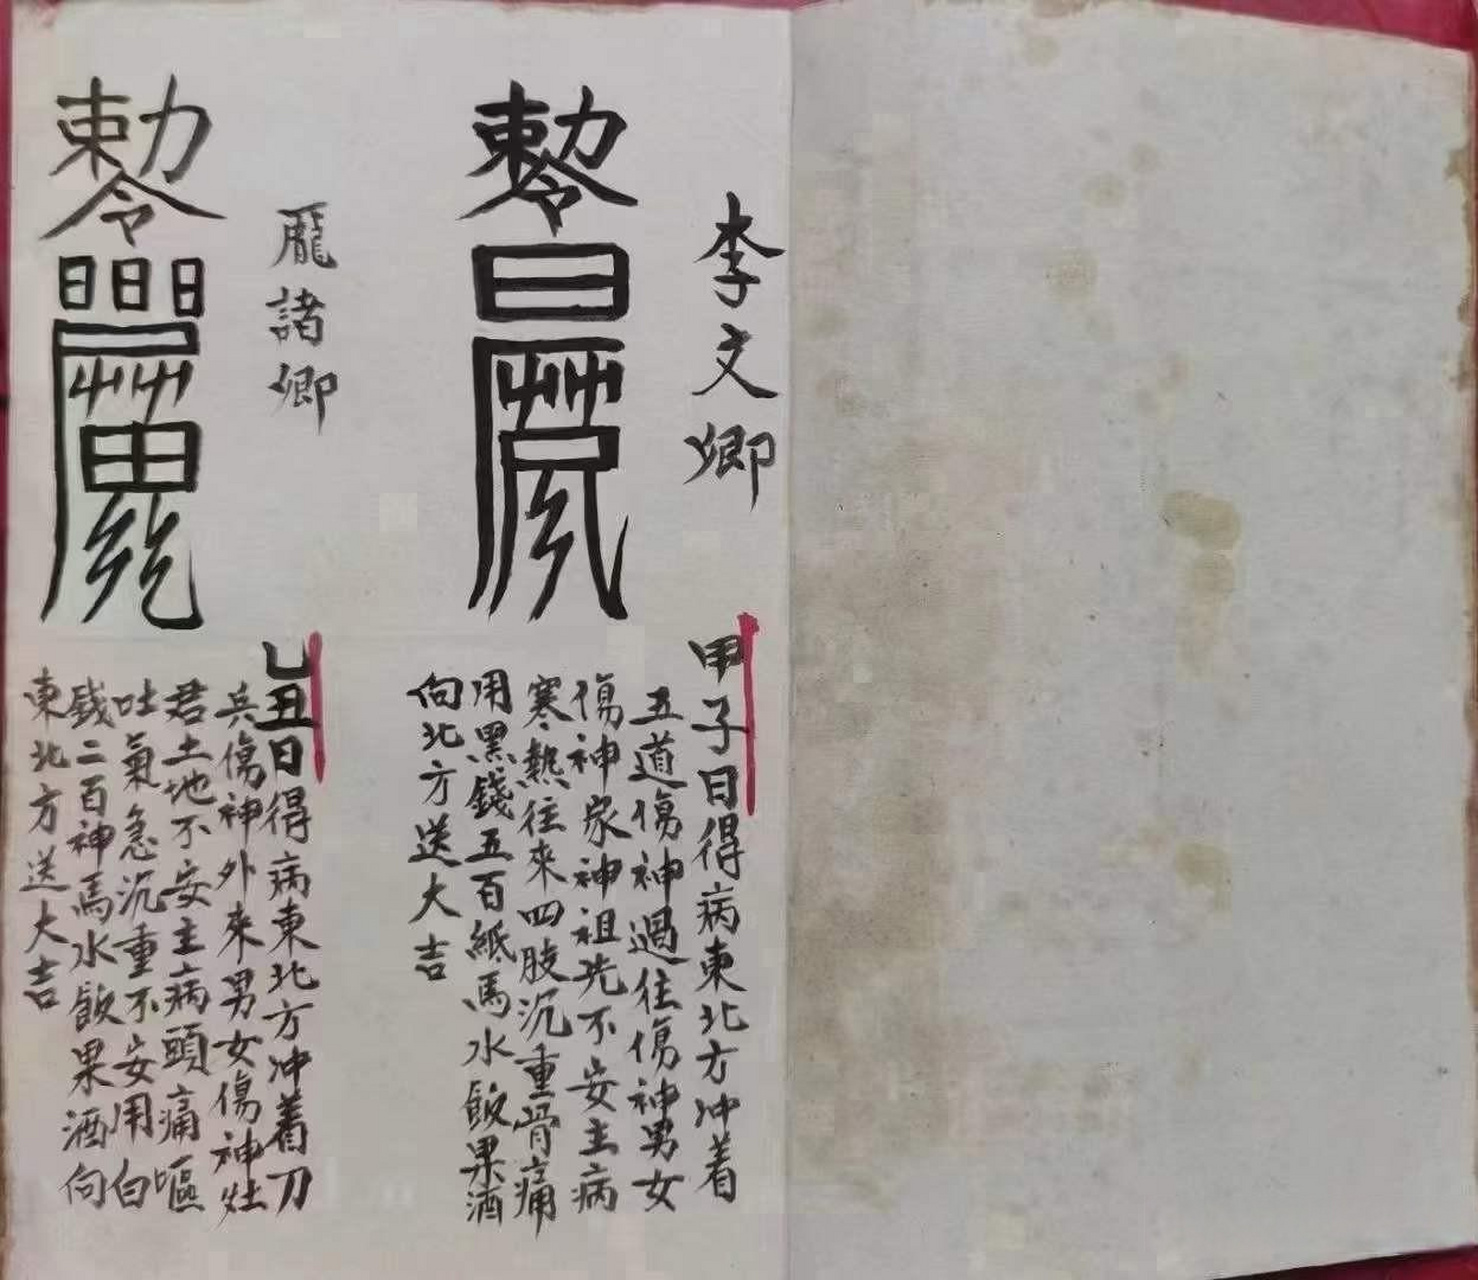 李文卿
敕令
甲子日得病東北方冲着
五道傷神過往傷神男女
傷神家神祖先不安主病
寒熱往來四肢沉重骨痛
用黑錢五百紙馬水飯果酒
向北方送大吉
龐諸卿
敕令
乙丑日得病東北方冲着刀
兵傷神外來男女傷神灶
君土地不安主病頭痛嘔
吐氣急沉重不安用白
錢二百神馬水飯果酒向
東北方送大吉